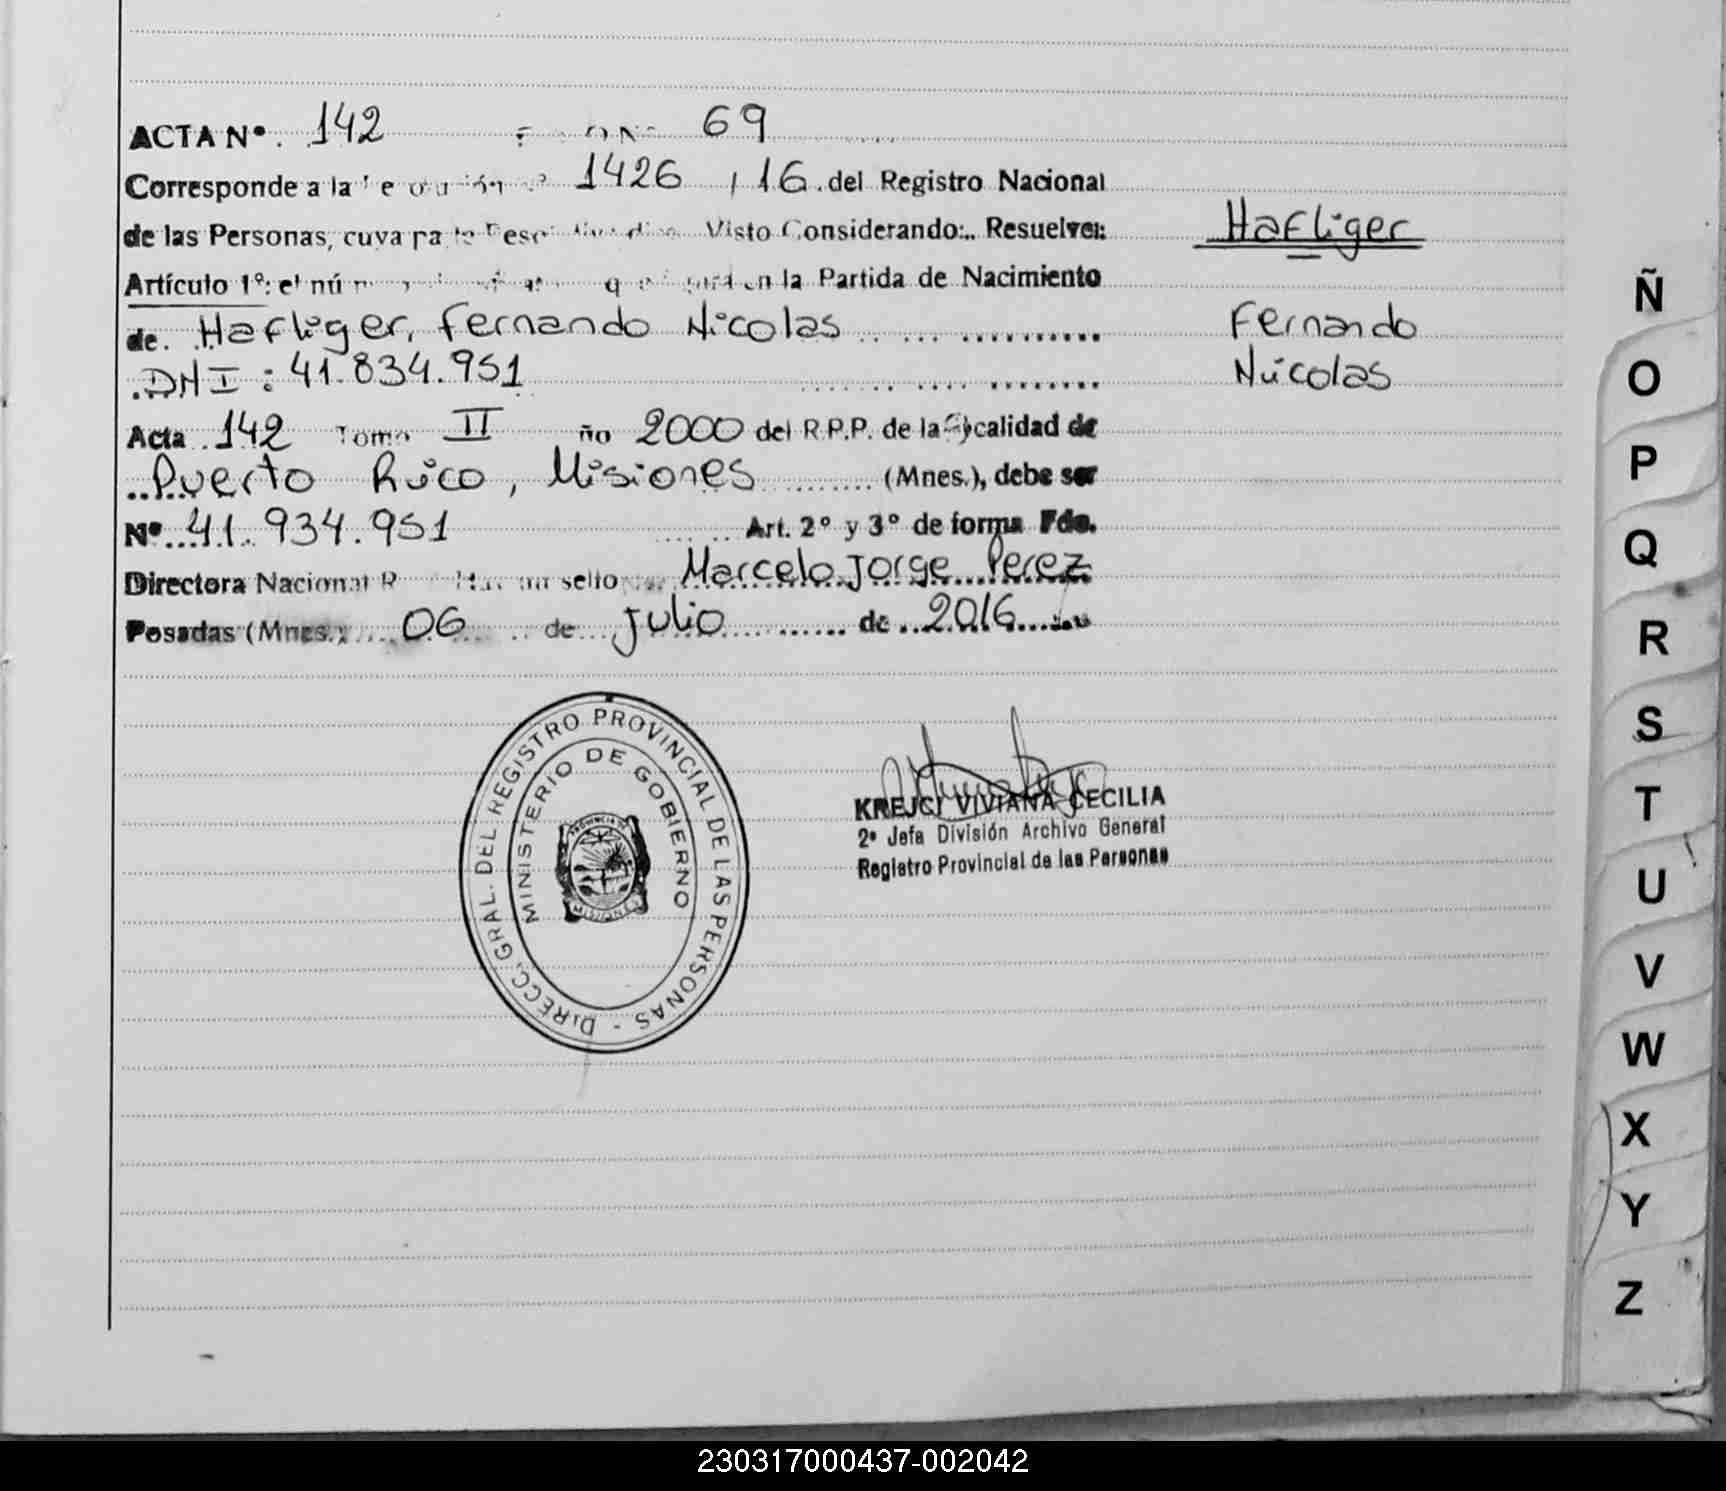 ACTA Nº. 142 69
Corresponde a la 1426 / 16. del Registro Nacional
de las Personas, cuya Visto Considerando:.. Resuelve:
Artículo 1º: el la Partida de Nacimiento
de. Hafliger, Fernando Nicolas
DNI: 41.834.951
Acta 142 Tomo II ño 2000 del R.P.P. de la localidad de
Puerto Rico, Misiones (Mnes.), debe ser
Nº 41.934.951 Art. 2º y 3º de forma Fdo.
Directora Nacional sello Marcelo Jorge Perez
Posadas (Mnes.) 06 de Julio de 2016
Hafliger
Fernando
Nicolas
DIRECC. GRAL. DEL REGISTRO PROVINCIAL DE LAS PERSONAS -
MINISTERIO DE GOBIERNO
PROVINCIA DE
MISIONES
KREJCI VIVIANA CECILIA
2ª Jefa División Archivo General
Registro Provincial de las Personas
Ñ
O
P
Q
R
S
T
U
V
W
X
Y
Z
230317000437-002042